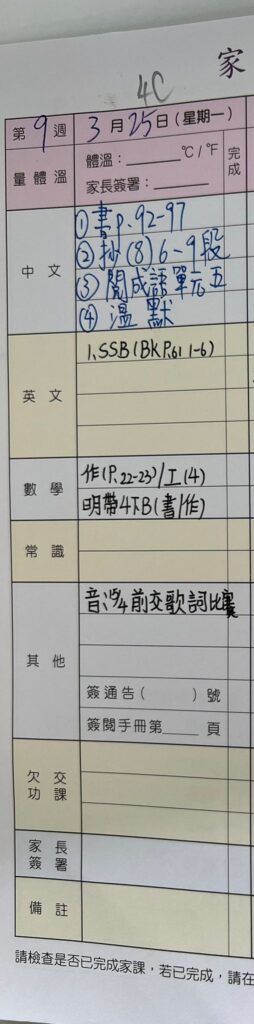 家
4C
第9週 3月25日(星期一)
量體溫 體溫：______°C/°F 完成
家長簽署：______
中文 ①書p.92-97
②抄(8)6-9段
③閱成語單元五
④溫默
英文 1.SSB(BK P.61 1-6)
數學 作(P.22-23)/工(4)
明帶4下B(書/作)
常識
其他 前交歌詞比賽
簽通告( )號
簽閱手冊第____頁
欠交功課
家長簽署
備註
請檢查是否已完成家課，若已完成，請在